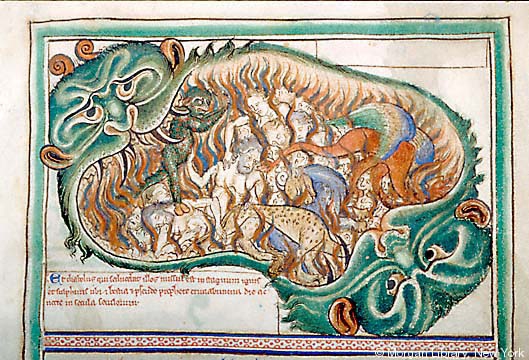 Et diabolus qui seducebat illos missus est in stagnum ignis
et sulphuris ubi et bestia ⁊ pseudo prophete cruciabuntur die ac
nocte in secula seculorum
© Morgan Library, New York